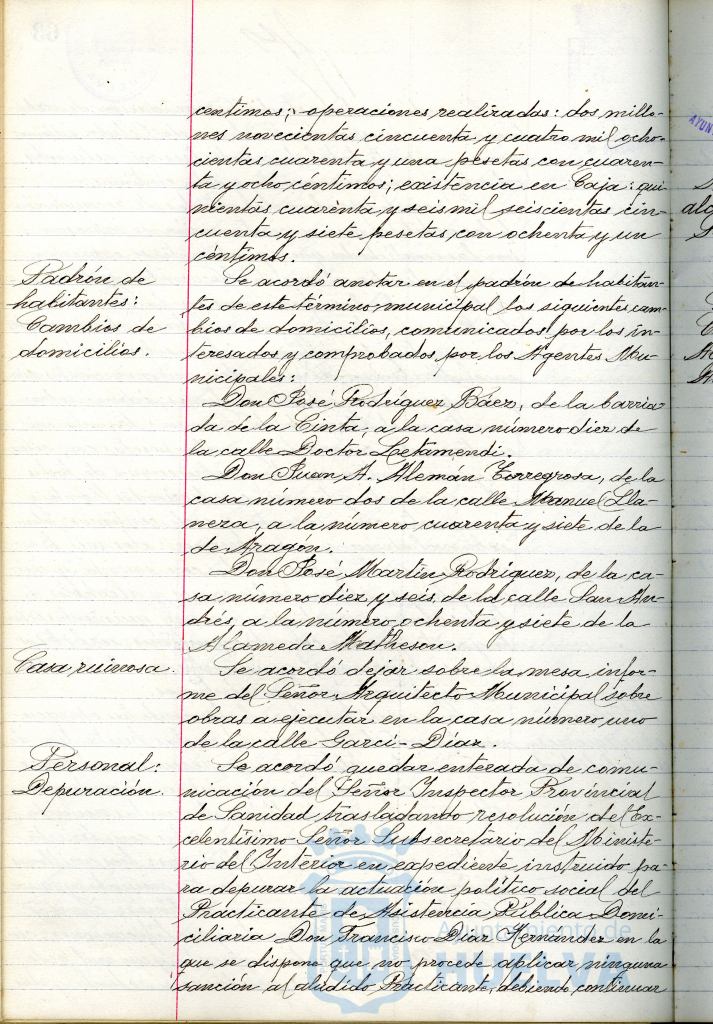 centimos; operaciones realizadas: dos millo-
nes novecientas cincuenta y cuatro mil ocho-
cientas cuarenta y una pesetas con cuaren-
ta y ocho céntimos; existencia en Caja: qui-
nientas cuarenta y seis mil seiscientas cin-
cuenta y siete pesetas con ochenta y un
céntimos.
Padrón de
habitantes:
Cambios de
domicilios.
Se acordó anotar en el padrón de habitan-
tes de este término municipal los siguientes cam-
bios de domicilios, comunicados por los in-
teresados y comprobados por los Agentes Mu-
nicipales:
Don José Rodríguez Báez, de la barria-
da de la Cinta, a la casa número diez de
la calle Doctor Letamendi.
Don Juan A. Alemán Torregrosa, de la
casa número dos de la calle Manuel Lla-
neza, a la número cuarenta y siete de la
de Aragón.
Don José Martín Rodríguez, de la ca-
sa número diez y seis de la calle San An-
drés, a la número ochenta y siete de la
Alameda Matheson.
Casa ruinosa.
Se acordó dejar sobre la mesa infor-
me del Señor Arquitecto Municipal sobre
obras a ejecutar en la casa número uno
de la calle Garci-Díaz.
Personal:
Depuración.
Se acordó quedar enterada de comu-
nicación del Señor Inspector Provincial
de Sanidad trasladando resolución del Ex-
celentísimo Señor Subsecretario del Ministe-
rio del Interior en expediente instruido pa-
ra depurar la actuación político social del
Practicante de Asistencia Pública Domi-
ciliaria Don Francisco Díaz Hernández en la
que se dispone que no procede aplicar ninguna
sanción al aludido Practicante, debiendo continuar
Ayuntamiento de
HUELVA